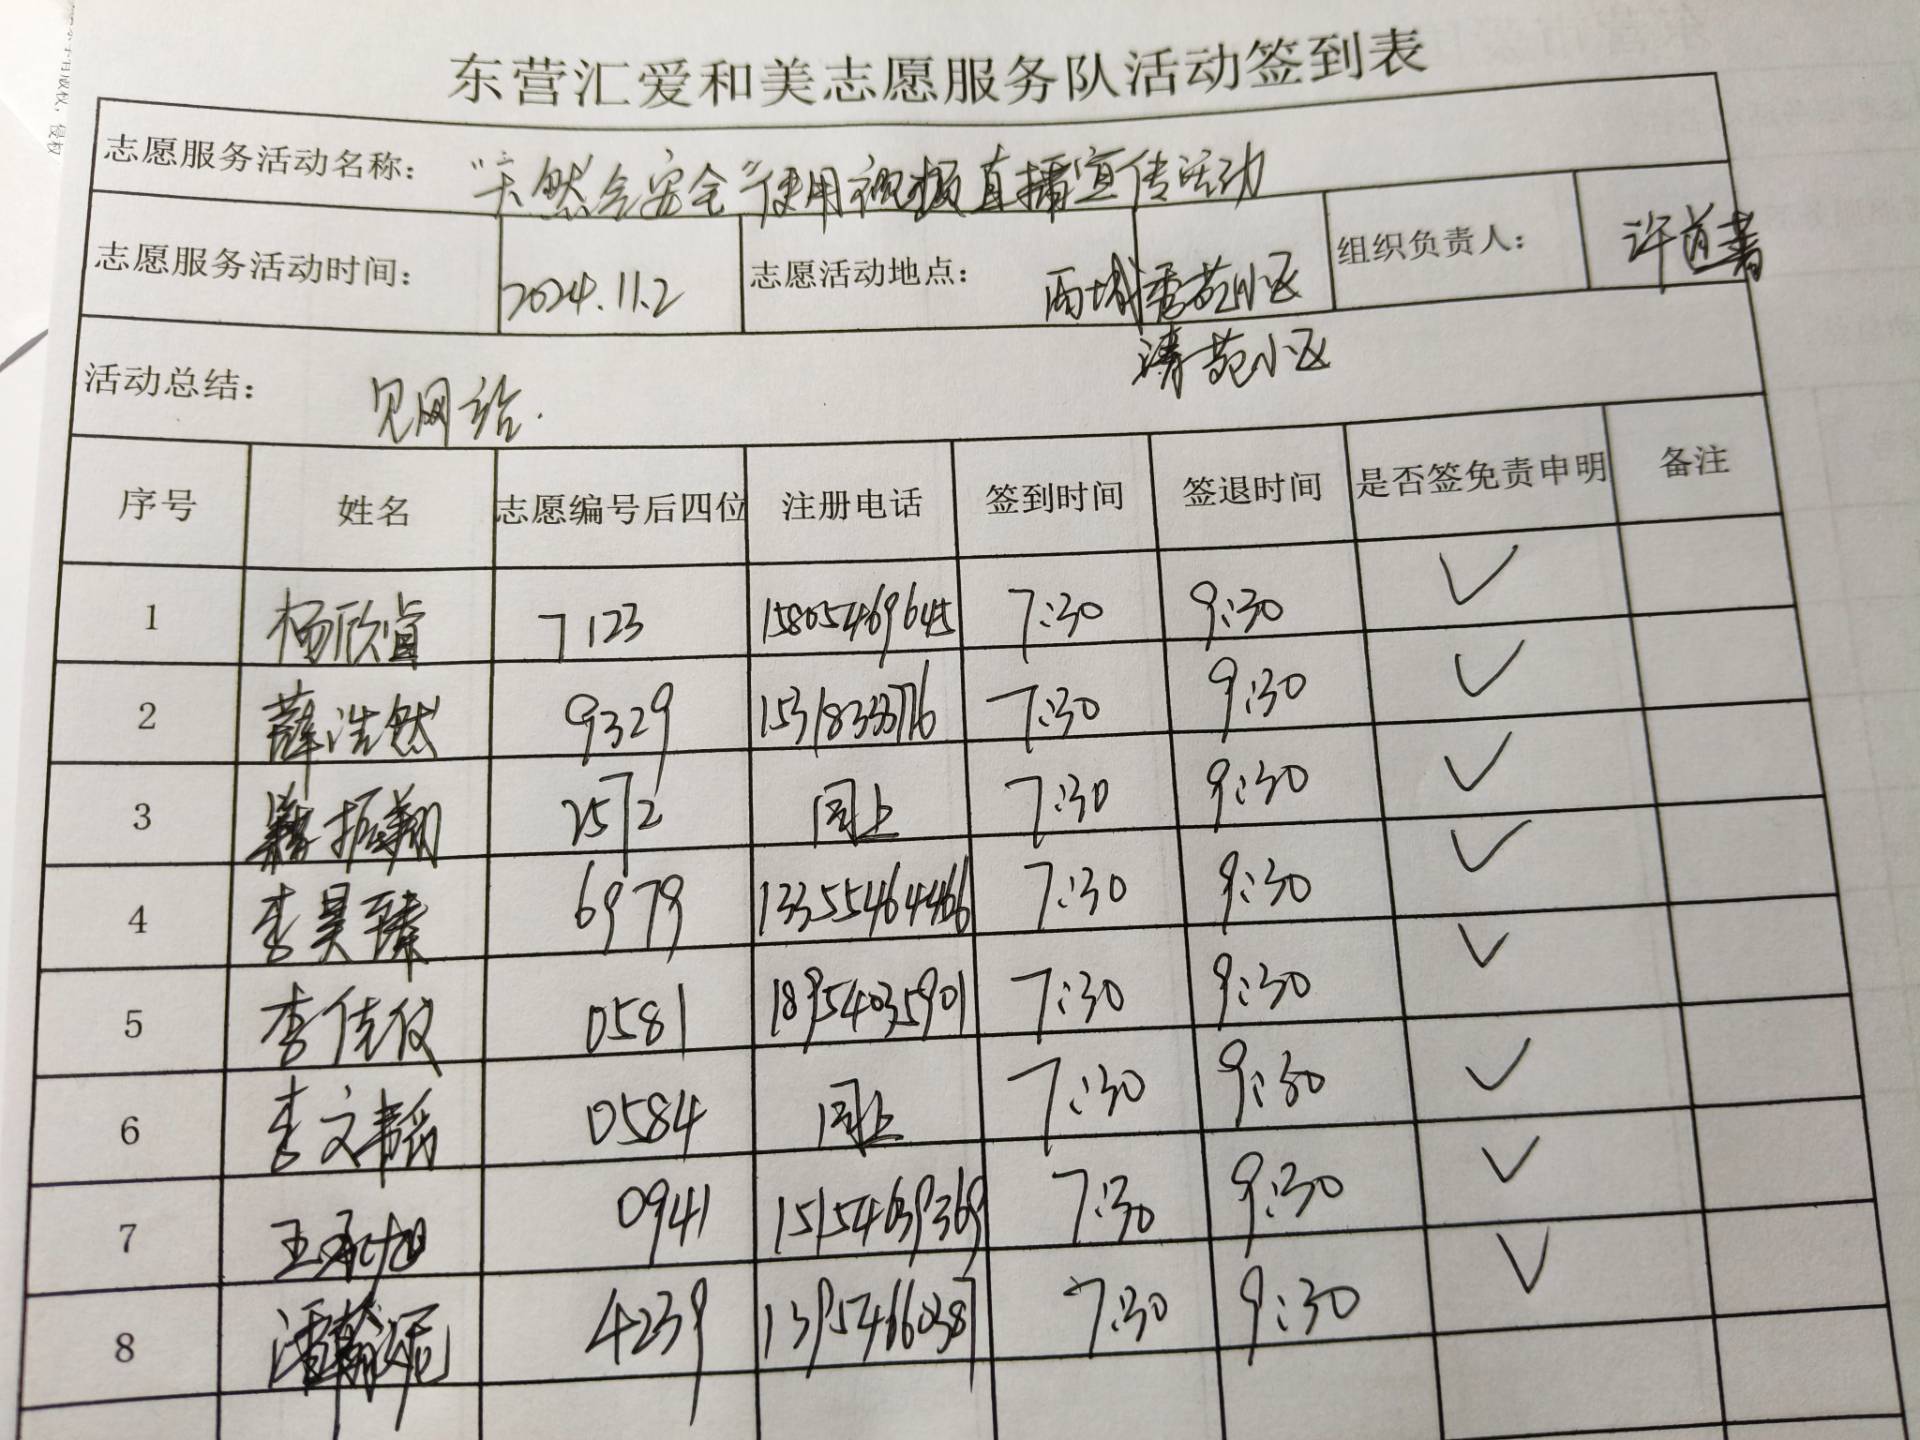 东营汇爱和美志愿服务队活动签到表
志愿服务活动名称： "天然气安全"使用视频直播宣传活动
志愿服务活动时间： 2024.11.2 志愿活动地点： 西城秀苑小区 组织负责人： 许道青
清苑小区
活动总结： 见网站.
序号 姓名 志愿编号后四位 注册电话 签到时间 签退时间 是否签免责申明 备注
1 杨欣谊 7123 15805469645 7:30 9:30 ✓
2 薛浩然 9329 15318338776 7:30 9:30 ✓
3 振翔 2572 同上 7:30 9:30 ✓
4 李昊臻 6979 13355464466 7:30 9:30 ✓
5 李佳仪 0581 18954035901 7:30 9:30 ✓
6 李文韬 0584 同上 7:30 9:30 ✓
7 王承旭 0941 15154639369 7:30 9:30 ✓
8 4239 13954660387 7:30 9:30 ✓